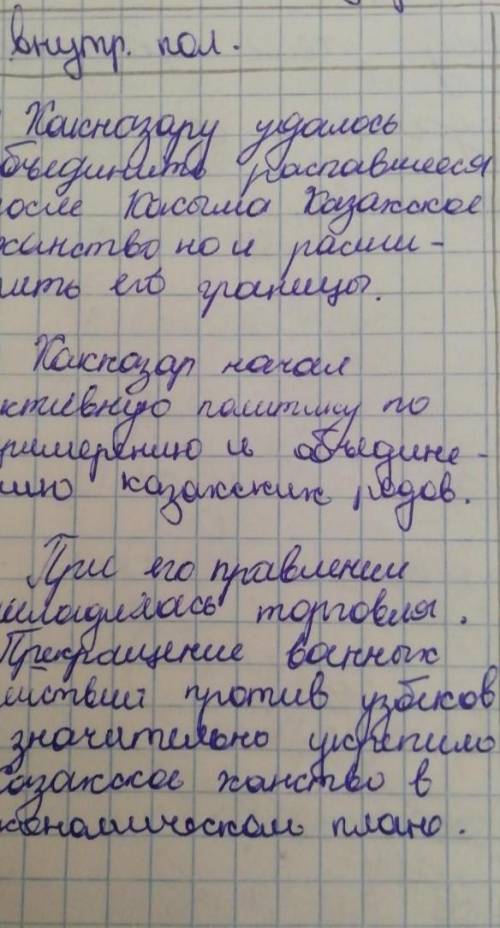 внутр. пол.
Хакназару удалось
бъединить распавшееся
осле Касыма Казахское
ханство но и расши-
ить его границы.
Хакназар начал
ктивную политику по
римерению и объедине-
ию казахских родов.
При его правлении
наладилась торговля.
Прекращение военных
йствий против узбеков
значительно укрепило
Казахское ханство в
кономическом плане.